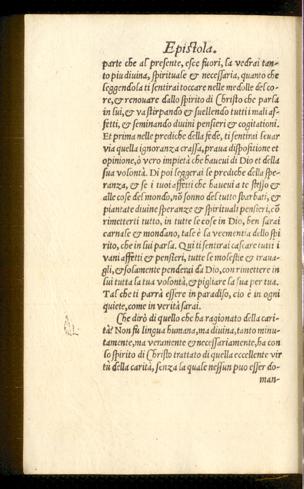 Epistola.
parte che al presente, esce fuori, la vedrai tan-
to piu divina, spirituale & necessaria, quanto che
leggendola ti sentirai toccare nelle medolle del co-
re, & renouare dallo spirito di Christo che parla
in lui, & va stirpando & suellendo tutti i mali af-
fetti, & seminando diuini pensieri & cogitationi.
Et prima nelle prediche della fede, ti sentirai leuar
via quella ignoranza crassa, praua dispositione et
opinione, ò vero impietà che haueui di Dio et della
sua volontà. Di poi leggerai le prediche della spe-
ranza, & se i tuoi affetti che haueui a te stesso &
alle cose del mondo, nõ sonno del tutto sbarbati, &
piantate diuine speranze & spirituali pensieri, cõ
rimetterti tutto, in tutte le cose in Dio, ben sarai
carnale & mondano, tale è la veementia dello spi
rito, che in lui parla. Qui ti sentirai cascare tutti i
vani affetti & pensieri, tutte le molestie & traua-
gli, & solamente penderai da Dio, con rimettere in
lui tutta la tua volontà, & pigliare la sua per tua.
Tal che ti parrà essere in paradiso, cio è in ogni
quiete, come in verità sarai.
Che dirò di quello che ha ragionato della cari-
tà? Non fu lingua humana, ma diuina, tanto minu-
tamente, ma veramente & necessariamente, ha con
lo spirito di Christo trattato di quella eccellente vir
tù della carità, senza la quale nessun puo esser do-
man-